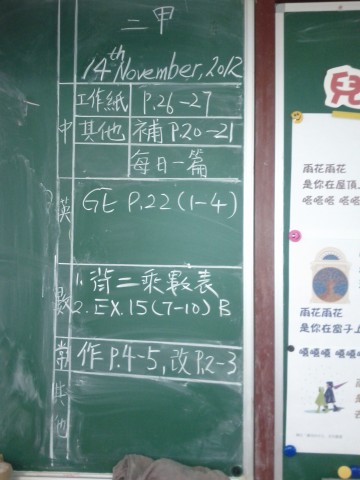 二甲
14th November, 2012
中
工作紙 P.26-27
其他 補 P.20-21
每日一篇
英
GE P.22 (1-4)
數
1. 街二乘數表
2. EX.15 (7-10) B
常
作 P.4-5, 改 P.2-3
其他
兒
雨花雨花
是你在屋頂
嗒嗒嗒 嗒
雨花雨花
是你在窗子上
嗒嗒嗒 嗒嗒